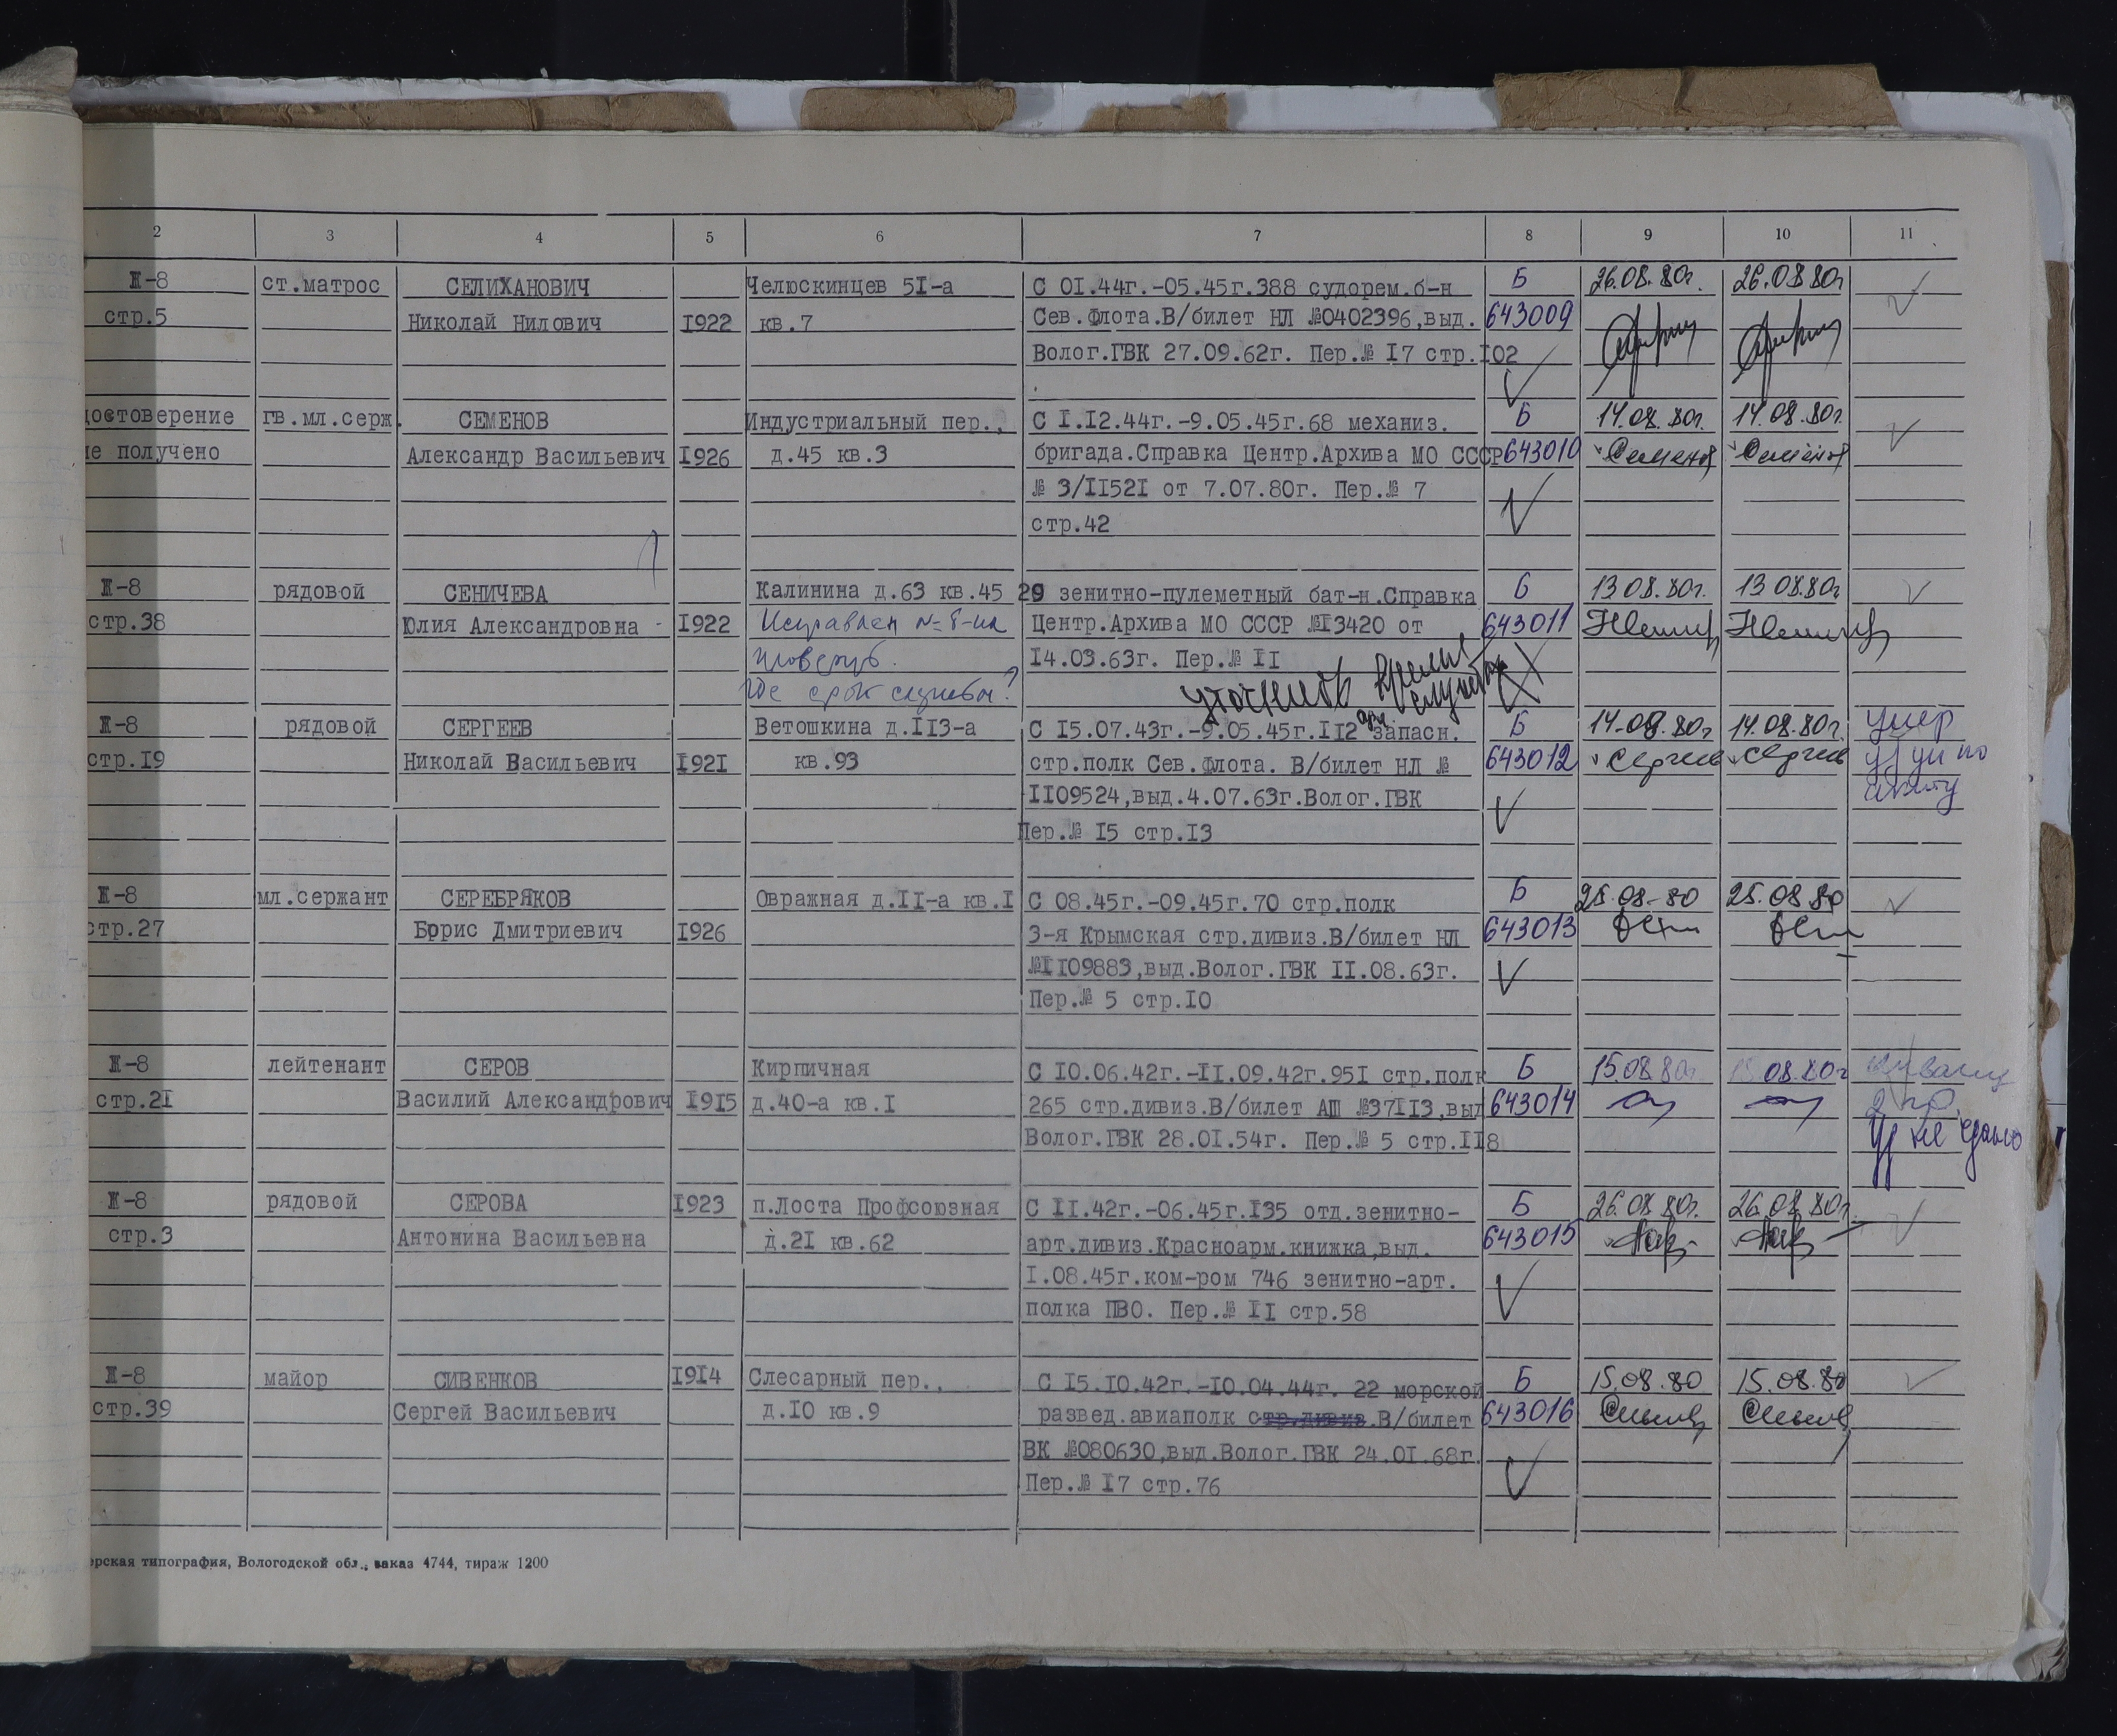 2 3 4 5 6 7 8 9 10 11
Ж-8 ст.матрос СЕЛИХАНОВИЧ Челюскинцев 5I-а С 0I.44г.-05.45г.388 судорем.б-н Б 26.08.80г. 26.08.80г
стр.5 Николай Нилович I922 кв.7 Сев.Флота.В/билет НЛ №0402396,выд. 643009
Волог.ГВК 27.09.62г. Пер.№ I7 стр.I02
достоверение гв.мл.серж. СЕМЕНОВ Индустриальный пер., С I.I2.44г.-9.05.45г.68 механиз. Б 14.08.80г. 14.08.80г.
не получено Александр Васильевич I926 д.45 кв.3 бригада.Справка Центр.Архива МО СССР 643010 Семенов Семенов
№ 3/II52I от 7.07.80г. Пер.№ 7
стр.42
Ж-8 рядовой СЕНИЧЕВА Калинина д.63 кв.45 29 зенитно-пулеметный бат-н.Справка Б 13 08.80г. 13 08.80г
стр.38 Юлия Александровна I922 Центр.Архива МО СССР №I3420 от 643011
I4.03.63г. Пер.№ II
Где срок службы? уточнить время службы
Ж-8 рядовой СЕРГЕЕВ Ветошкина д.II3-а С I5.07.43г.-9.05.45г.II2 запасн. Б 14.08.80г 14.08.80г. умер
стр.I9 Николай Васильевич I92I кв.93 стр.полк Сев.Флота. В/билет НЛ № 643012 Сергеев Сергеев
II09524,выд.4.07.63г.Волог.ГВК
Пер.№ I5 стр.I3
Ж-8 мл.сержант СЕРЕБРЯКОВ Овражная д.II-а кв.I С 08.45г.-09.45г.70 стр.полк Б 25.08-80 25.08.80
стр.27 Борис Дмитриевич I926 3-я Крымская стр.дивиз.В/билет НЛ 643013
№II09883,выд.Волог.ГВК II.08.63г.
Пер.№ 5 стр.I0
Ж-8 лейтенант СЕРОВ Кирпичная С I0.06.42г.-II.09.42г.95I стр.полк Б 15.08.80г. 15.08.80г
стр.2I Василий Александрович I9I5 д.40-а кв.I 265 стр.дивиз.В/билет АШ №37II3,выд 643014
Волог.ГВК 28.0I.54г. Пер.№ 5 стр.II8 уд не сдано
Ж-8 рядовой СЕРОВА I923 п.Лоста Профсоюзная С II.42г.-06.45г.I35 отд.зенитно- Б 26.08.80г. 26.08.80г.
стр.3 Антонина Васильевна д.2I кв.62 арт.дивиз.Красноарм.книжка,выд. 643015
I.08.45г.ком-ром 746 зенитно-арт.
полка ПВО. Пер.№ II стр.58
Ж-8 майор СИВЕНКОВ I9I4 Слесарный пер., С I5.I0.42г.-I0.04.44г. 22 морской Б 15.08.80 15.08.80
стр.39 Сергей Васильевич д.I0 кв.9 развед.авиаполк стр.дивиз.В/билет 643016
ВК №080630,выд.Волог.ГВК 24.0I.68г.
Пер.№ I7 стр.76
ерская типография, Вологодской обл., заказ 4744, тираж 1200